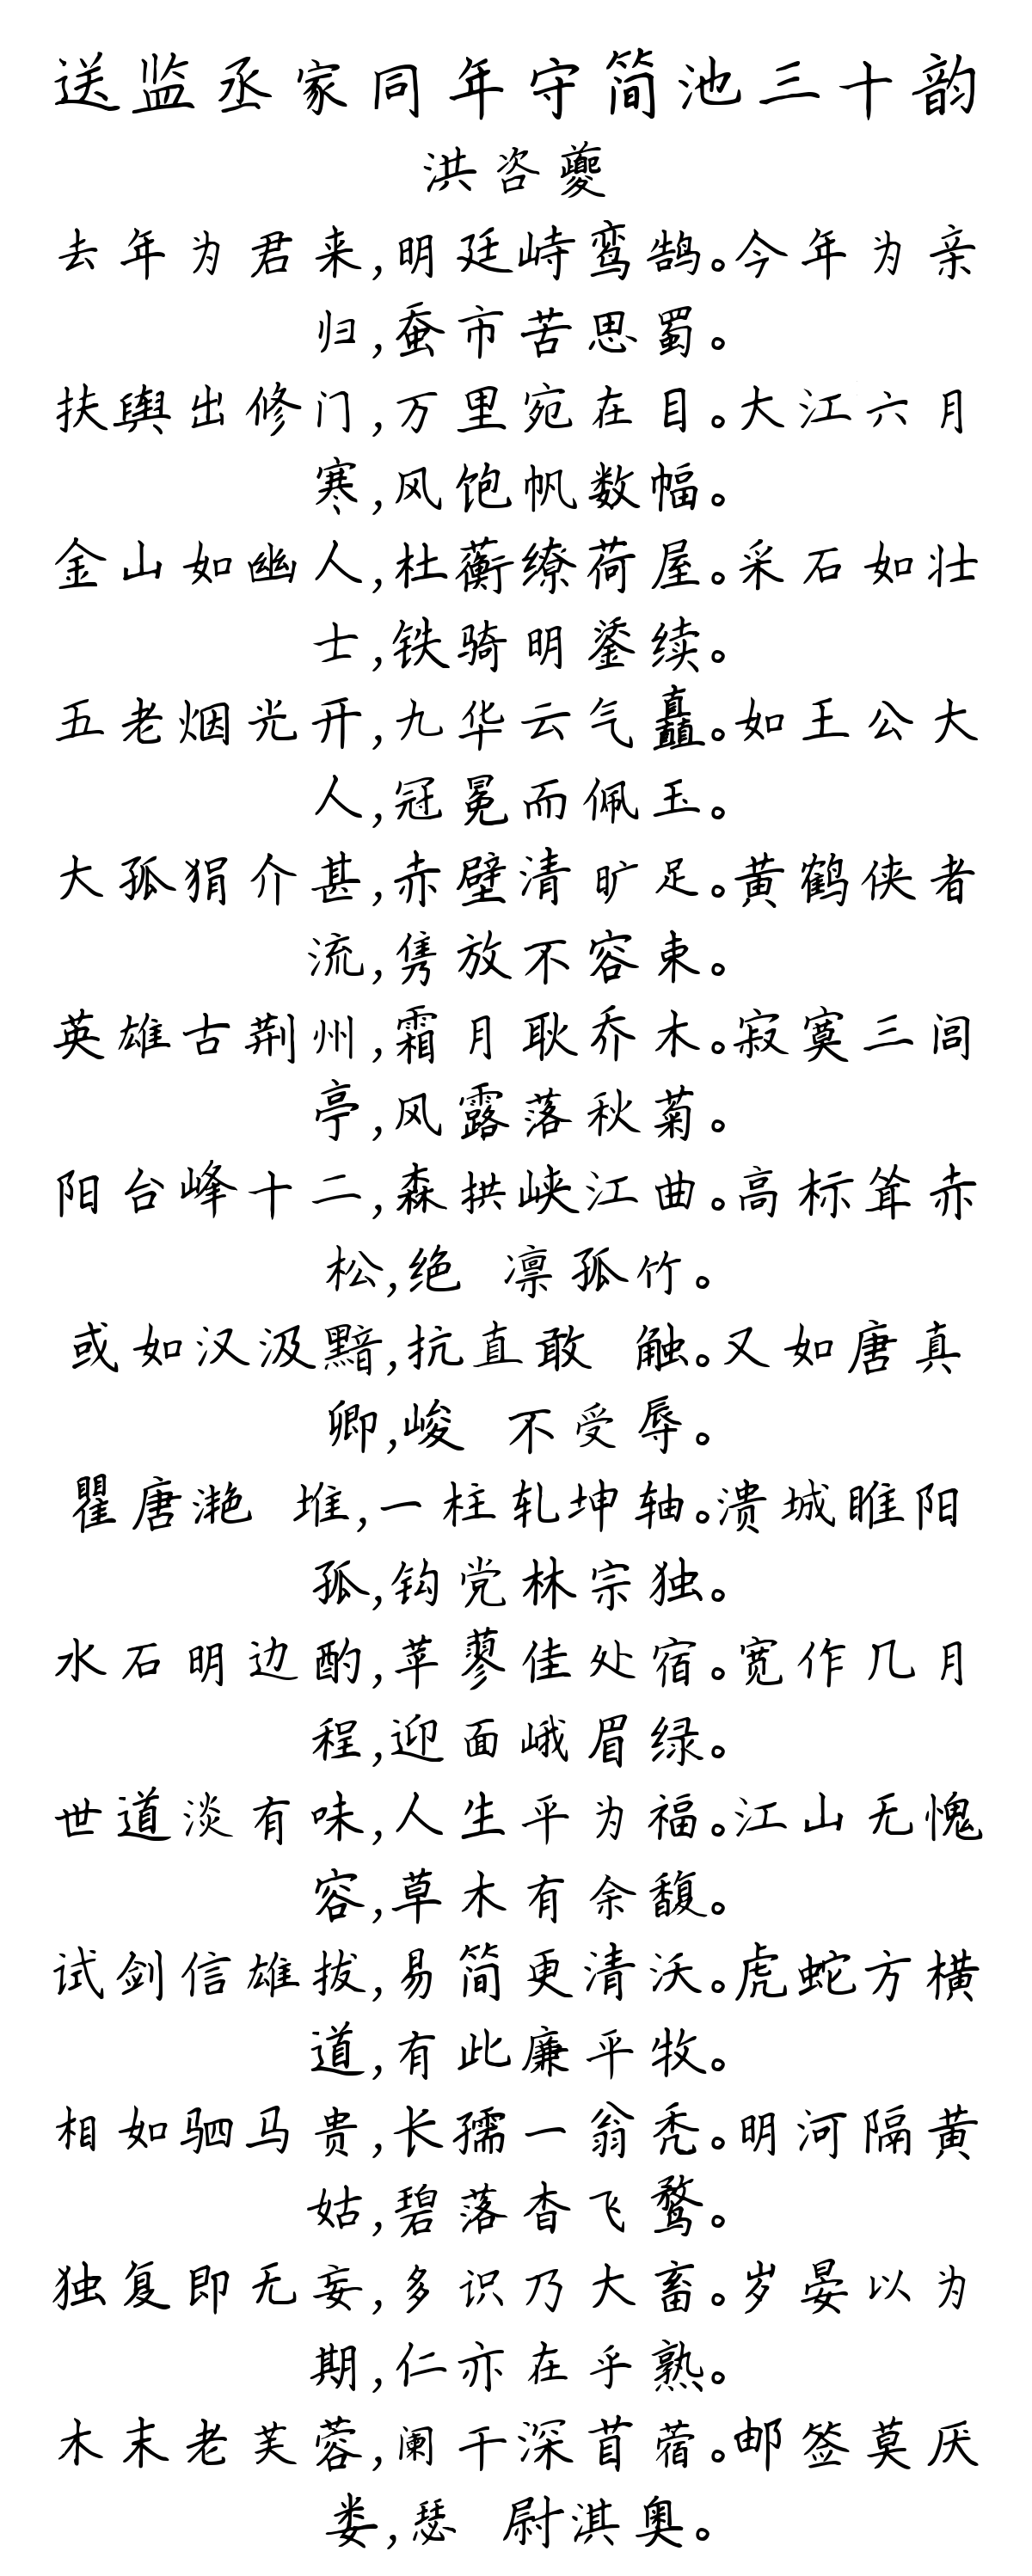 送监丞家同年守简池三十韵
洪咨夔
去年为君来,明廷峙鸾鹄。今年为亲
归,蚕市苦思蜀。
扶舆出修门,万里宛在目。大江六月
寒,风饱帆数幅。
金山如幽人,杜蘅缭荷屋。采石如壮
士,铁骑明鋈续。
五老烟光开,九华云气矗。如王公大
人,冠冕而佩玉。
大孤狷介甚,赤壁清旷足。黄鹤侠者
流,隽放不容束。
英雄古荆州,霜月耿乔木。寂寞三闾
亭,风露落秋菊。
阳台峰十二,森拱峡江曲。高标耸赤
松,绝 凛孤竹。
或如汉汲黯,抗直敢 触。又如唐真
卿,峻 不受辱。
瞿唐滟 堆,一柱轧坤轴。溃城睢阳
孤,钩党林宗独。
水石明边酌,苹蓼佳处宿。宽作几月
程,迎面峨眉绿。
世道淡有味,人生平为福。江山无愧
容,草木有余馥。
试剑信雄拔,易简更清沃。虎蛇方横
道,有此廉平牧。
相如驷马贵,长孺一翁秃。明河隔黄
姑,碧落杳飞鹜。
独复即无妄,多识乃大畜。岁晏以为
期,仁亦在乎熟。
木末老芙蓉,阑干深苜蓿。邮签莫厌
娄,瑟 尉淇奥。